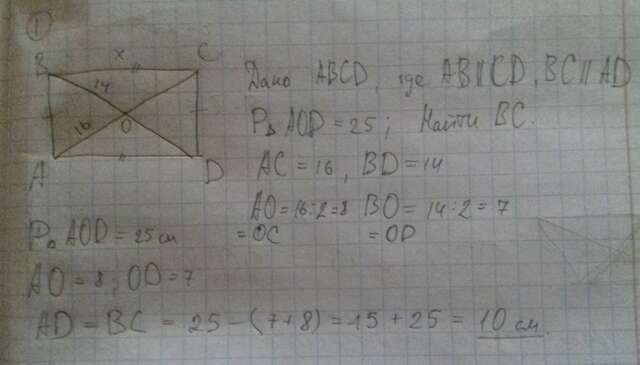 1
B x C
14
16 O
A D
Дано ABCD, где AB||CD, BC||AD
P△ AOD = 25; Найти BC.
AC = 16, BD = 14
AO = 16:2 = 8 BO = 14:2 = 7
= OC = OD
P△ AOD = 25 см
AO = 8, OD = 7
AD = BC = 25 - (7+8) = -15 + 25 = 10 см.